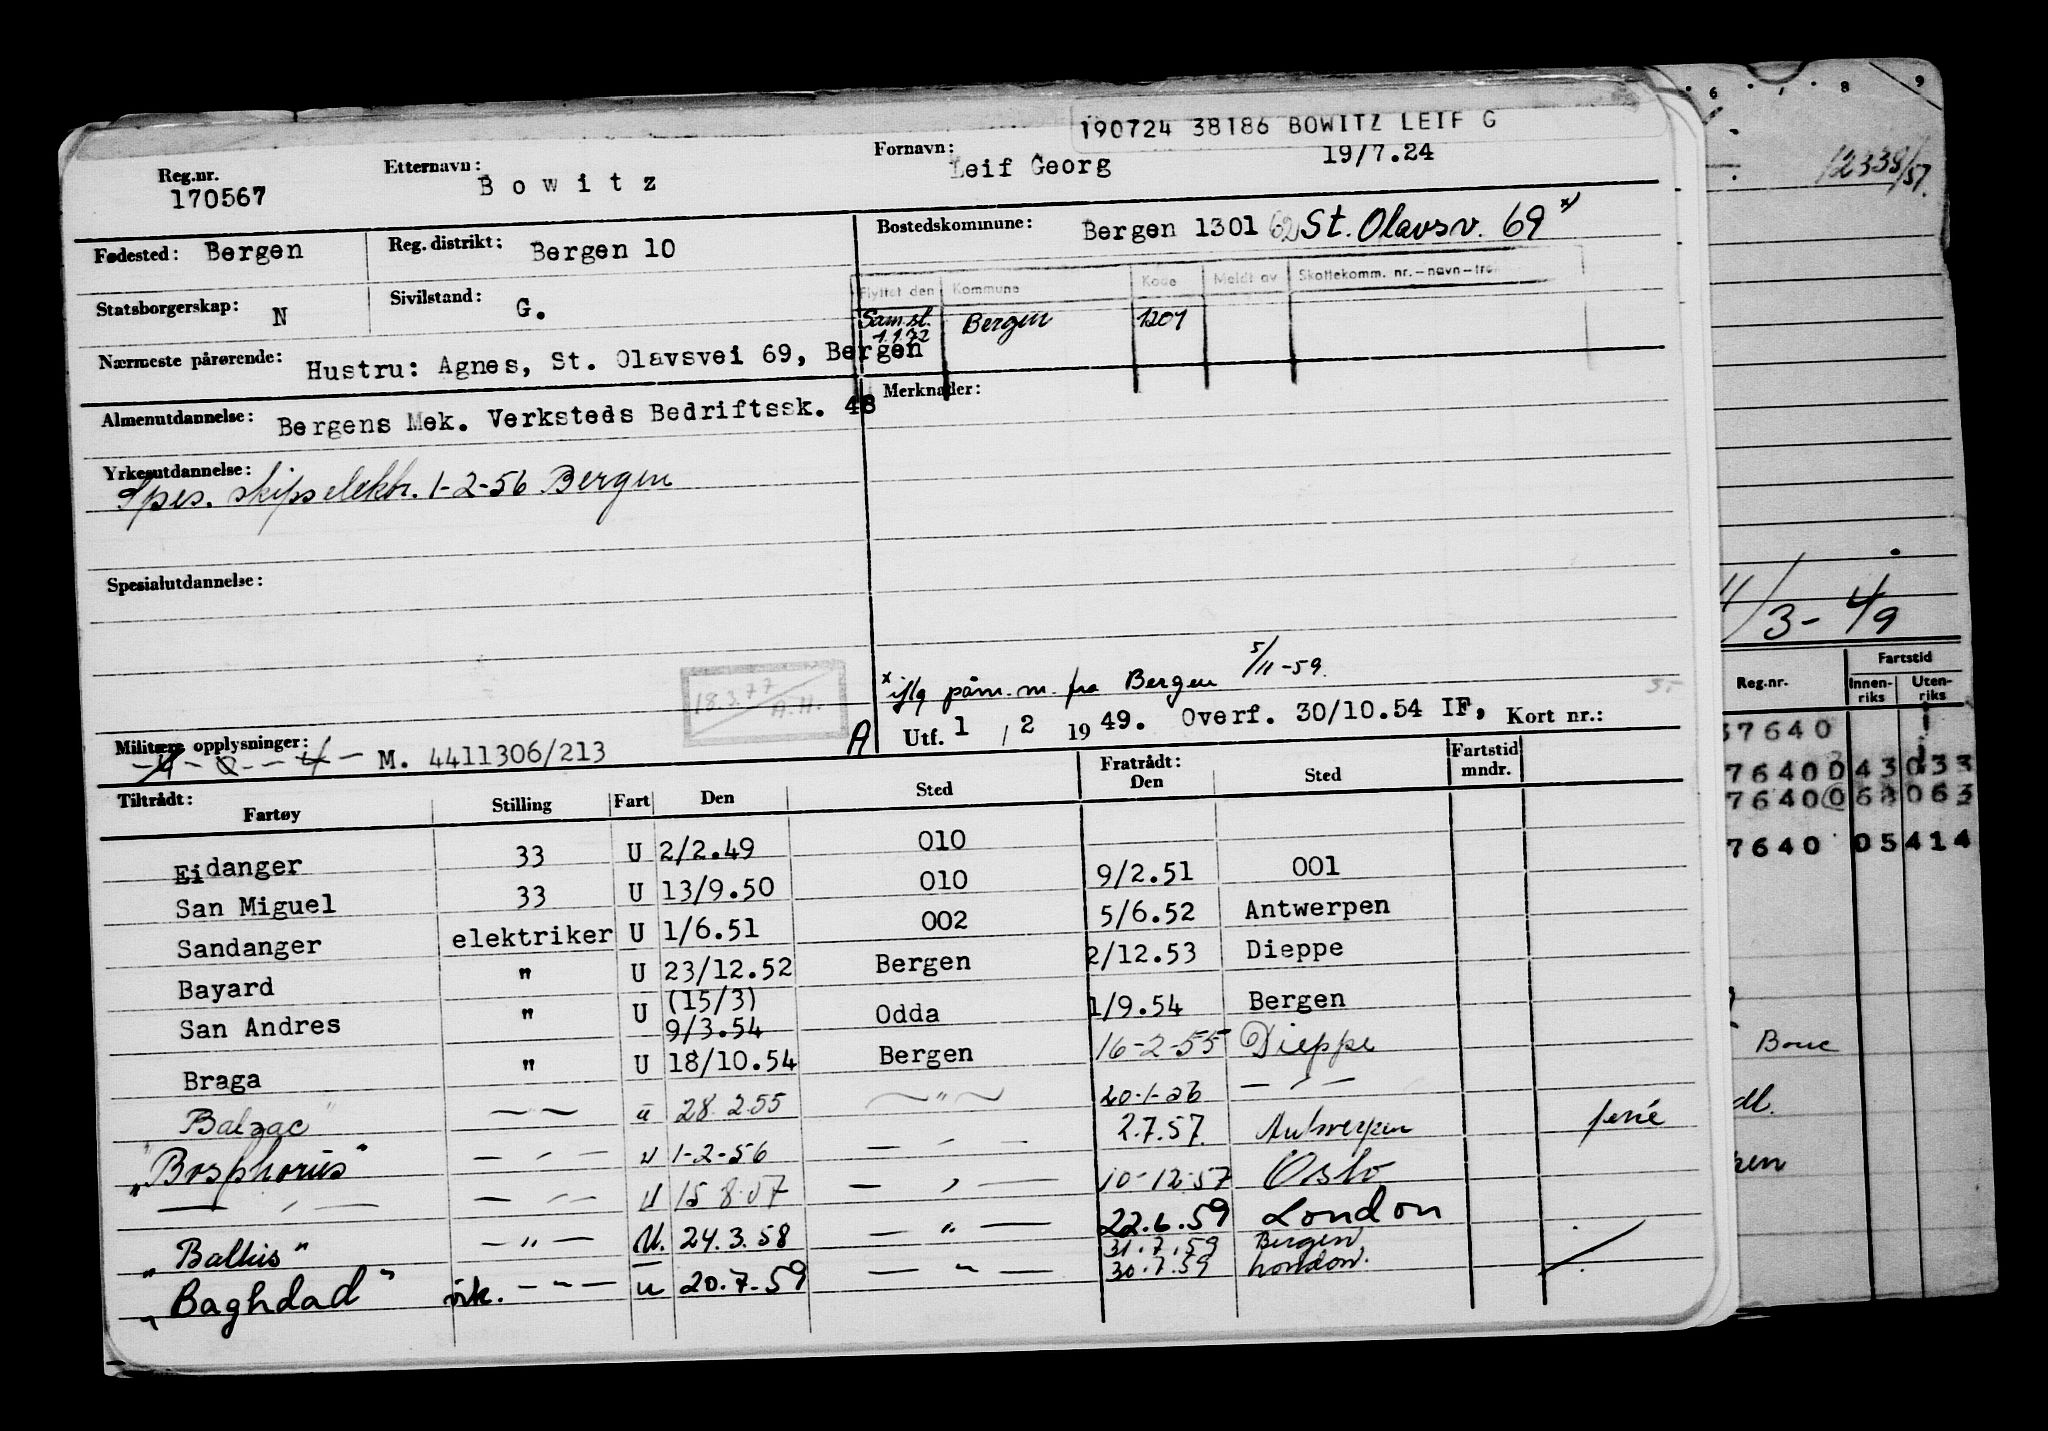 190724 38186 BOWITZ LEIF G
Reg.nr. 170567 Etternavn: Bowitz Fornavn: Leif Georg 19/7.24
Fødested: Bergen Reg. distrikt: Bergen 10 Bostedskommune: Bergen 1301 62 St. Olavsv. 69 x)
Statsborgerskap: N Sivilstand: G.
Flyttet den Kommune Kode Meldt av Skattekomm. nr.-navn-tr
Sam.sl. 1.1.72 Bergen 1201
Nærmeste pårørende: Hustru: Agnes, St. Olavsvei 69, Bergen
Almenutdannelse: Bergens Mek. Verksteds Bedriftssk. 48
Merknader:
Yrkesutdannelse: Spes. skipselektr. 1-2-56 Bergen
Spesialutdannelse:
18.3.77 A.H.
x iflg påm. m. fra Bergen 5/11-59.
A Utf. 1 / 2 1949. Overf. 30/10.54 IF, Kort nr.:
Militære opplysninger: M. 4411306/213
Tiltrådt: Fratrådt:
Fartøy Stilling Fart Den Sted Den Sted Fartstid mndr.
Eidanger 33 U 2/2.49 010
San Miguel 33 U 13/9.50 010 9/2.51 001
Sandanger elektriker U 1/6.51 002 5/6.52 Antwerpen
Bayard " U 23/12.52 Bergen 2/12.53 Dieppe
San Andres " U (15/3) 9/3.54 Odda 1/9.54 Bergen
Braga " U 18/10.54 Bergen 16-2-55 Dieppe
Balzac" — — u 28.2.55 — " — 20-1-56 — " —
"Bosphorus" — " — u 1-2-56 — " — 2.7.57. Antwerpen ferie
— " — — " — U 15.8.57 — " — 10-12-57 Oslo
"Balkis" — " — U. 24.3.58 — " — 22.6.59 London
31.7.59 Bergen
"Baghdad" vik. — " — u 20.7.59 — " — 30.7.59 London.
6 . 8 9
12338/57.
11/3-49
Reg.nr. Fartstid
Innenriks Utenriks
37640
7640 0 43 033
7640 0 68 063
7640 05 414
Bouc